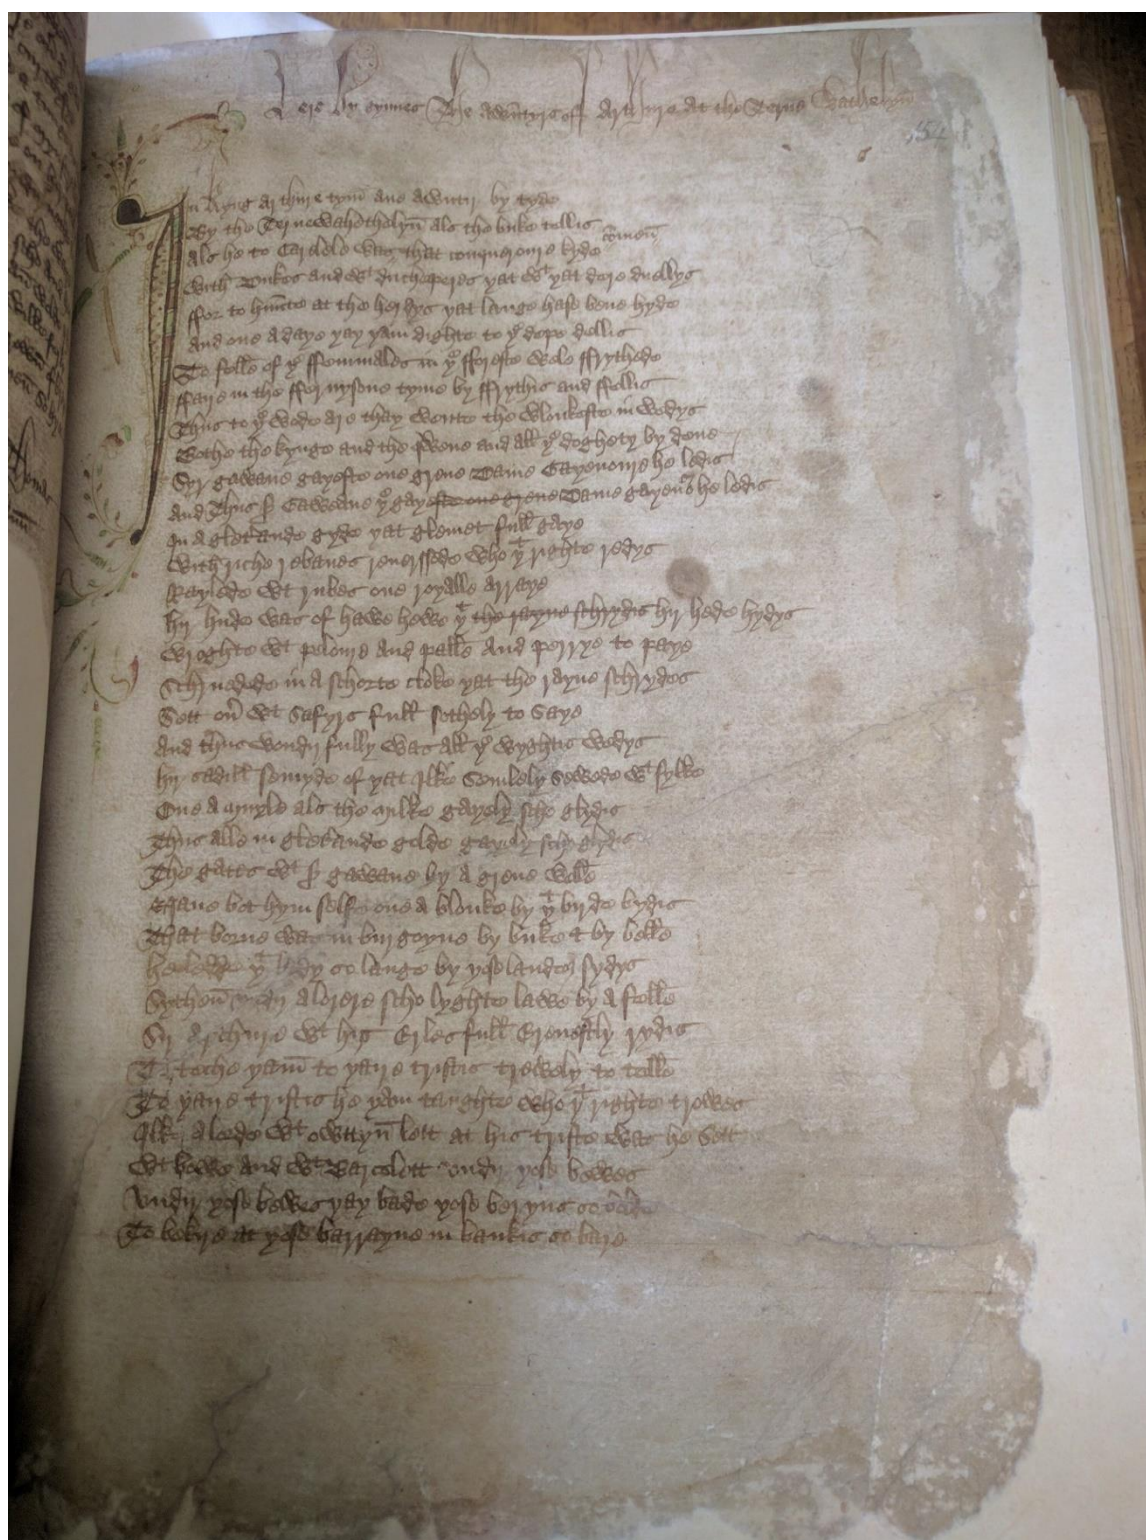 Here By gynnes The Awntyrs off Arthure At the Terne Wathelyn
In Kyng Arthure tym ane awntir by tyde
By the Terne wahethelyn als the buke tellis
Als he to Carelele was comen that conqueroure kyde
With Dukes and wt ducheperes yat wt yat dere duellys
ffor to hunte at the herdys yat lange hase bene hyde
And one a daye yay yam dighte to ye depe dellis
To felle of ye ffemmales in ye fforeste wele ffrythede
ffaire in the ffernysone tyme by ffrythis and ffellis
Thus to ye wode are thay wente the wlonkeste in wedys
Bothe the kynge and the qwene and all ye doghety by dene
Syr gawane gayeste one grene Dame Gayenoure he ledis
And Thus sr Gawane ye gay este one grene Dame gayenour he ledis
In a gletande gyde yat glemet full gaye
With riche rebanes reuerssede who yt righte redys
Raylede wt rubes one royalle arraye
hir hude was of hawe hewe yt the rayne schrydis hir hede hydys
Wroghte wt peloure And palle And perrye to paye
Schruedede in a schorte cloke yat the rayne schrydes
Sett ouer wt Safyrs full sothely to Saye
And thus wondirfully was all ye wyghtis wedys
hir sadill semyde of yat Ilke Semlely Sewede wt sylke
One a muyle als the mylke gayely scho glydis
Thus alle in gletande golde gayely scho glydis
The gates wt sr gawane by a grene welle
Nane bot hym selfe one a blonke by yt birde bydis
That borne was in burgoyne by buke & by belle
he ledde yt lady so lange by yose landes sydys
Sythen vndir a lorere scho lyghte lawe by a felle
Sir Arthure wt his Erles full Erenestly rydis
To teche yam to yaire tristis trewely to telle
To yaire tristis he yam taughte who yt righte trowes
Ilke a lorde wt owttyn lett at his triste was he Sett
Wt bowe And wt Barcelett vndir yose bewes
Vndir yose bewes yay bade yose beryns so bolde
To bekire at yose barrayne in bankis so bare